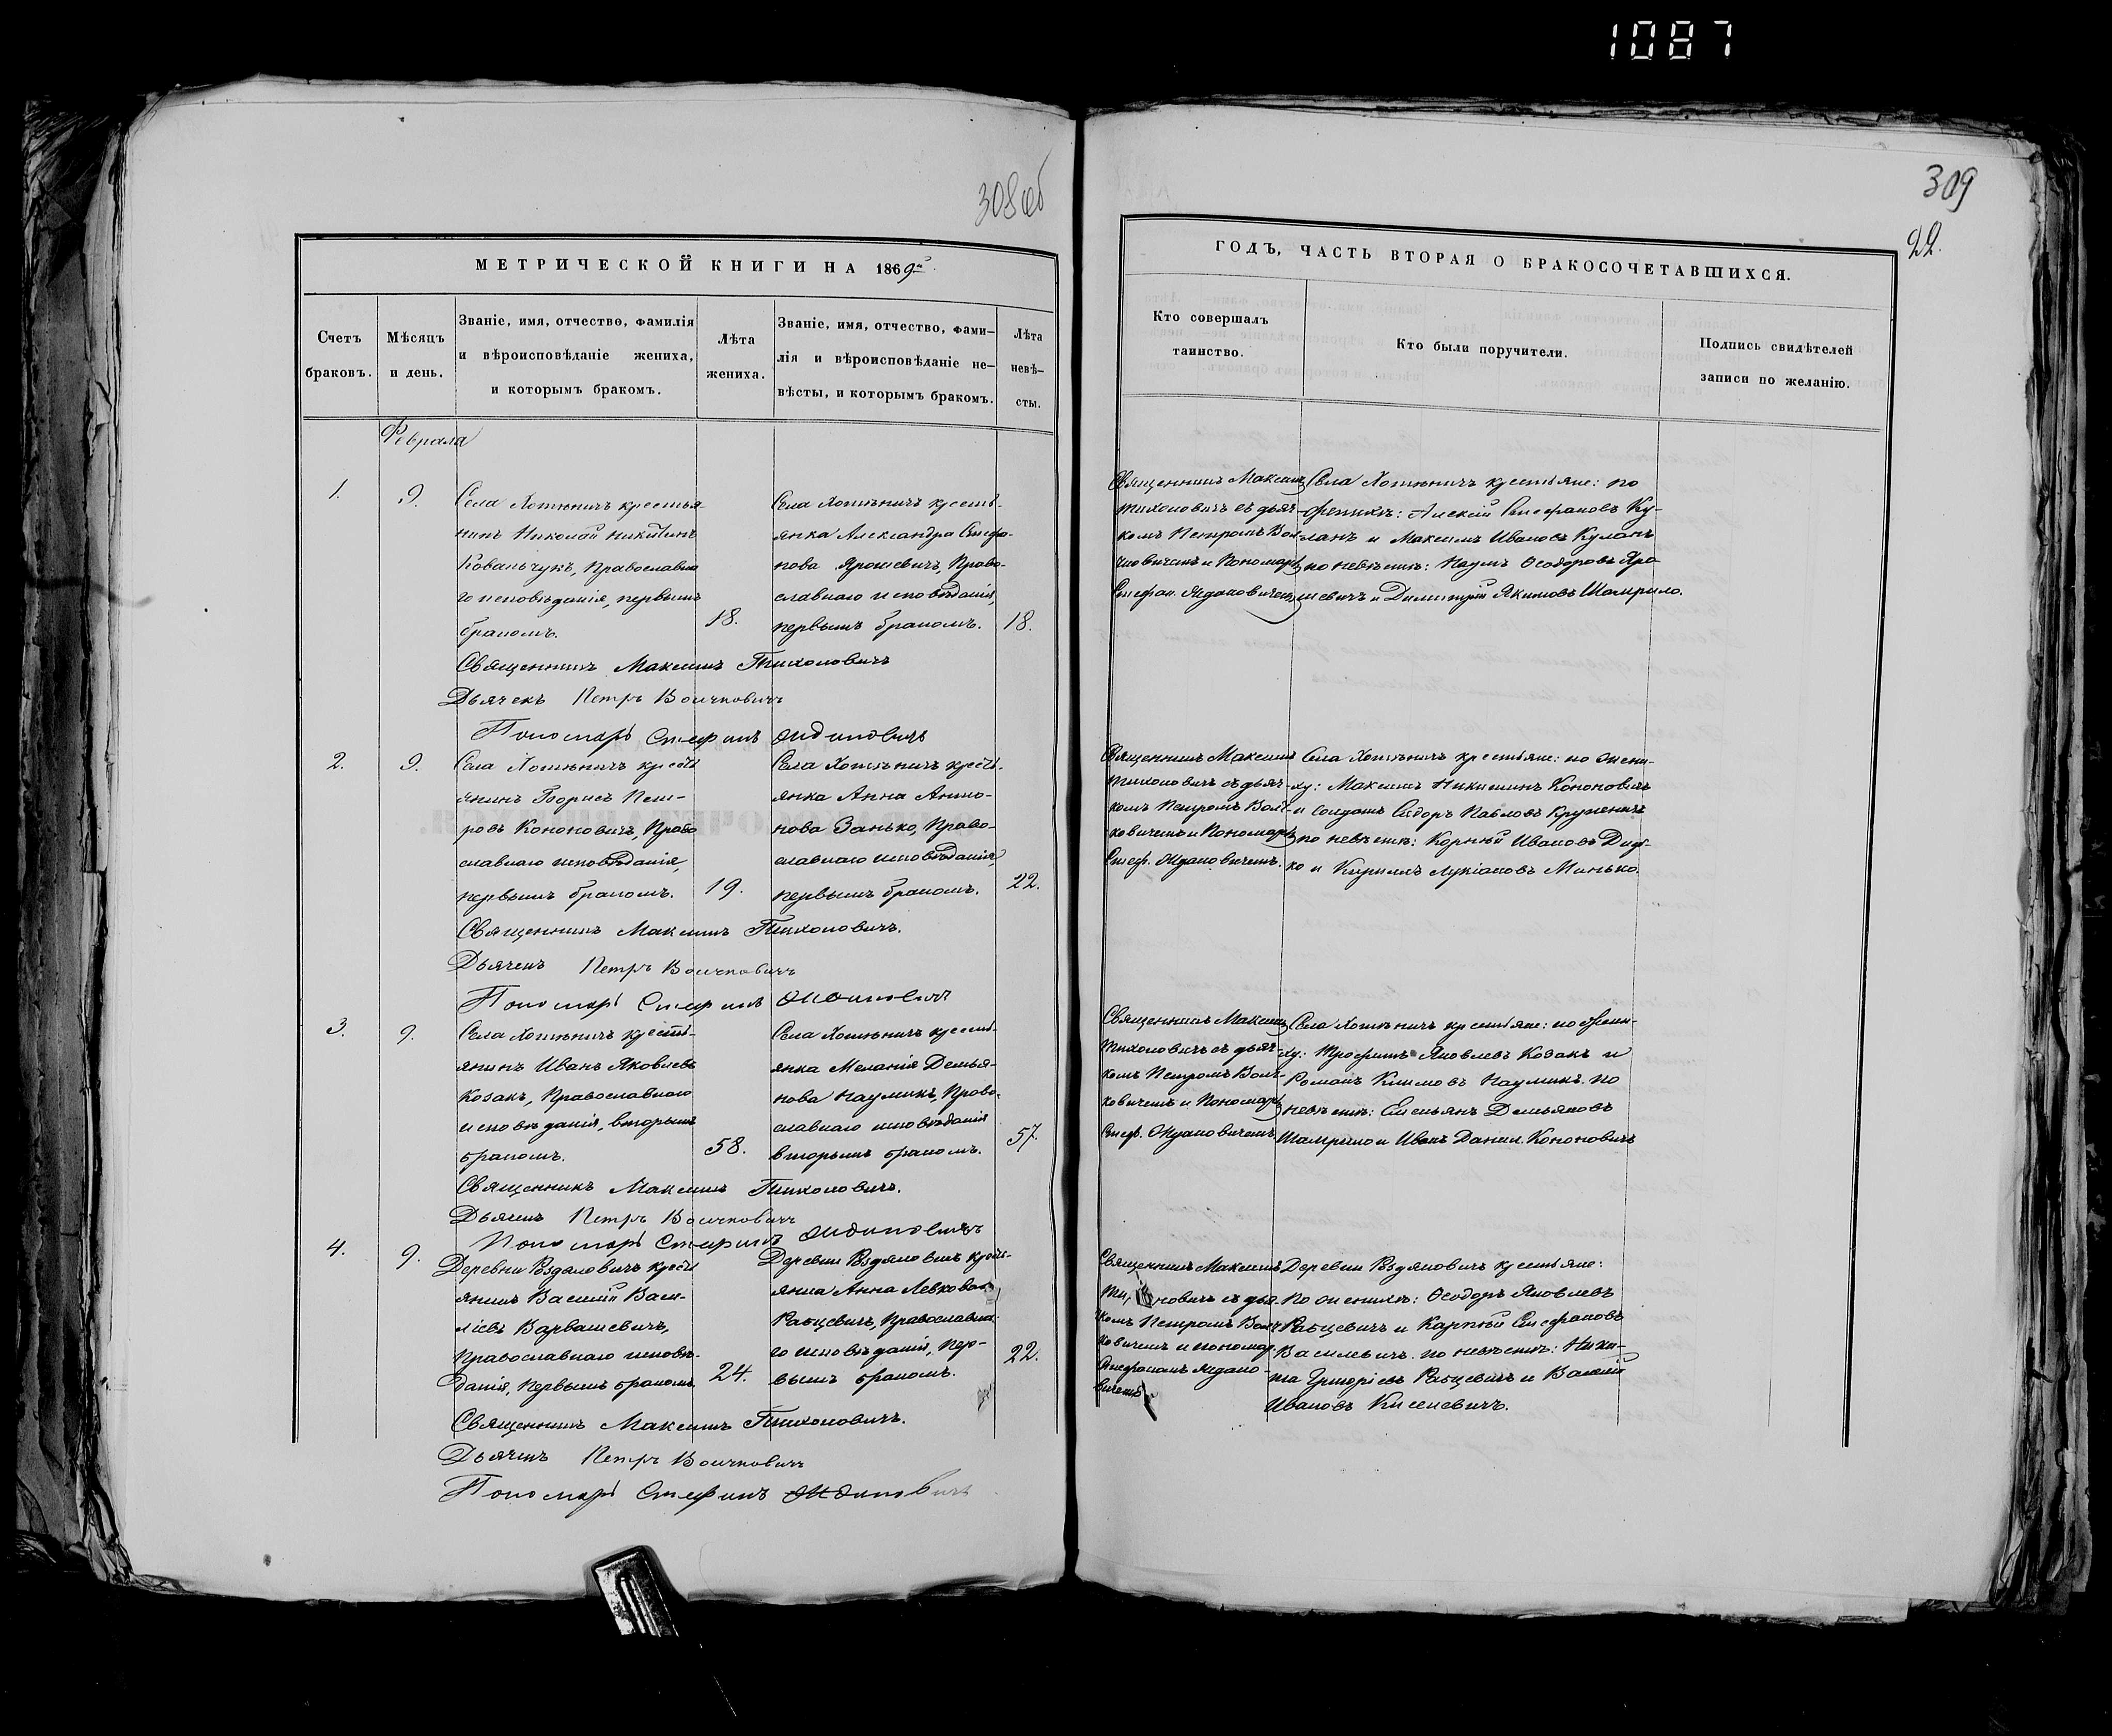 1087
308 об
МЕТРИЧЕСКОЙ КНИГИ НА 1869й
Счетъ
браковъ.
Мѣсяцъ
и день.
Званіе, имя, отчество, фамилія
и вѣроисповѣданіе жениха,
и которымъ бракомъ.
Лѣта
жениха.
Званіе, имя, отчество, фами-
лія и вѣроисповѣданіе не-
вѣсты, и которымъ бракомъ.
Лѣта
невѣ-
сты.
Февраля
1.
9.
Села Хотѣничъ крестья-
нинъ Николай Никитинъ
Ковальчукъ, Православна
го исповѣданія, первымъ
бракомъ.
18.
Села Хотѣничъ кресть-
янка Александра Стефа-
нова Ярошевичъ, Право-
славнаго исповѣданія,
первымъ бракомъ.
18.
Священникъ Максимъ Тихоновичъ
Дьячекъ Петръ Волчковичъ
Пономарь Стефанъ Ждановичъ
2.
9.
Села Хотѣничъ кресть
янинъ Борисъ Пет-
ровъ Кононовичъ, Право
славнаго исповѣданія,
первымъ бракомъ.
19.
Села Хотѣничъ кресть-
янка Анна Анто-
нова Занько, Право-
славнаго исповѣданія,
первымъ бракомъ.
22.
Священникъ Максимъ Тихоновичъ.
Дьячекъ Петръ Волчковичъ
Пономарь Стефанъ Ждановичъ
3.
9.
Села Хотѣничъ кресть-
янинъ Иванъ Яковлевъ
Козакъ, Православнаго
исповѣданія, вторымъ
бракомъ.
58.
Села Хотѣничъ кресть-
янка Меланія Демья-
нова Наумикъ, Право-
славнаго исповѣданія
вторымъ бракомъ.
57.
Священникъ Максимъ Тихоновичъ.
Дьячекъ Петръ Волчковичъ
Пономарь Стефанъ Ждановичъ
4.
9.
Деревни Уздяловичъ кресть
янинъ Василій Васи-
ліевъ Варвашевичъ,
Православнаго исповѣ-
данія, первымъ бракомъ
24.
янка Анна Левкова
Рабцевичъ, Православна-
го исповѣданія, пер-
вымъ бракомъ.
22.
Священникъ Максимъ Тихоновичъ.
Дьячекъ Петръ Волчковичъ
Пономарь Стефанъ Ждановичъ
309
22.
ГОДЪ, ЧАСТЬ ВТОРАЯ О БРАКОСОЧЕТАВШИХСЯ.
Кто совершалъ
таинство.
Кто были поручители.
Подпись свидѣтелей
записи по желанію.
Священникъ Максимъ
Тихоновичъ съ дьяч-
комъ Петромъ Вол-
чковичемъ и Пономаремъ
Стефан. Ждановичемъ
Села Хотѣничъ крестьяне: по
женихѣ: Алексій Стефановъ Ку-
ланъ и Максимъ Ивановъ Куланъ
по невѣстѣ: Наумъ Ѳеодоровъ Яро
шевичъ и Димитрій Якимовъ Шатрило.
Священникъ Максимъ
Тихоновичъ съ дьяч-
комъ Петромъ Волч-
ковичемъ и Пономаремъ
Стеф. Ждановичемъ.
Села Хотѣничъ крестьяне: по жени-
ху: Максимъ Никитинъ Кононовичъ
и солдатъ Сидоръ Павловъ
по невѣстѣ: Корнѣй Ивановъ Дид-
ко и Кириллъ Лукіановъ Минько.
Священникъ Максимъ
Тихоновичъ съ дьяч-
комъ Петромъ Волч-
ковичемъ и Пономаремъ
Стеф. Ждановичемъ
Села Хотѣничъ крестьяне: по жени-
ху: Трофимъ Яковлевъ Козакъ и
Романъ Климовъ Наумикъ. по
невѣстѣ: Емельянъ Демьяновъ
Шатрило и Иванъ Данил. Кононовичъ
Священникъ Максимъ
новичъ съ дья-
чкомъ Петромъ Волч-
ковичемъ и пономар.
Стефаномъ Ждано-
вичемъ
крестьяне:
По женихѣ: Ѳеодоръ Яковлевъ
Рабцевичъ и Карпѣй Стефановъ
Василевичъ. по невѣстѣ: Ники-
та Григоріевъ Рабцевичъ и Василій
Ивановъ Киселевичъ.